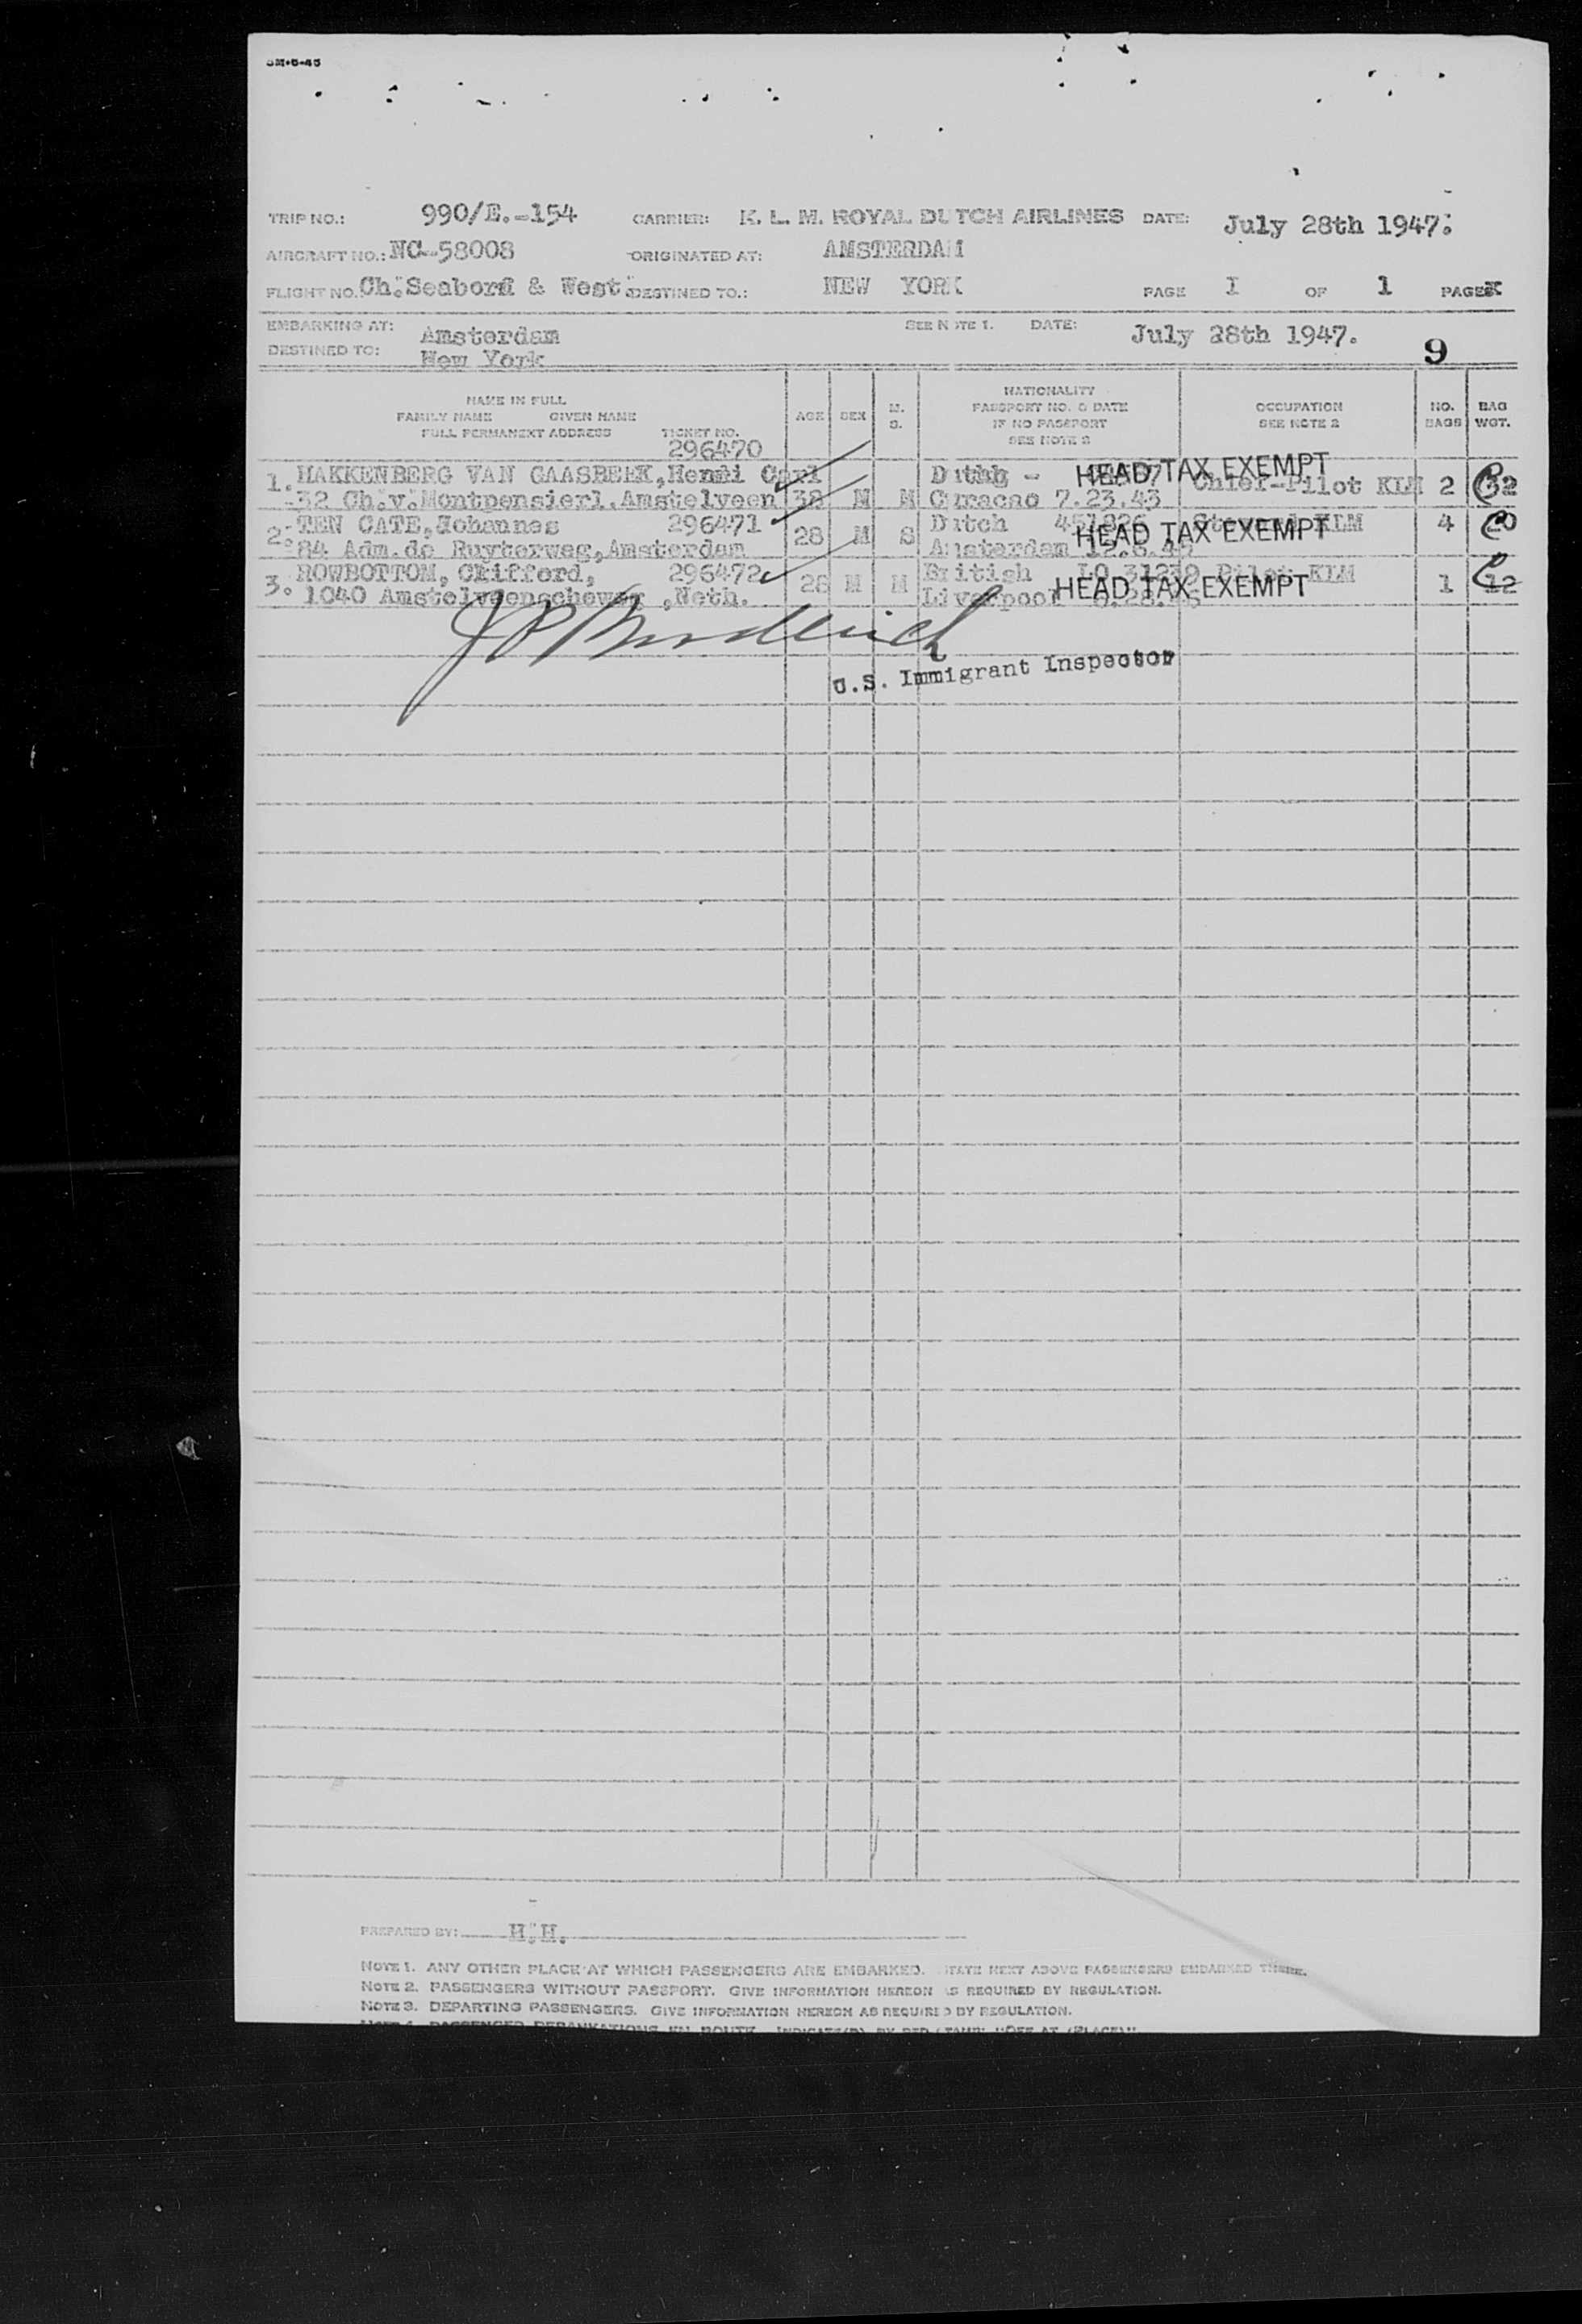 TRIP NO.: 990/E.-154 CARRIER: K. L. M. ROYAL DUTCH AIRLINES DATE: July 28th 1947.
AIRCRAFT NO.: NC-58008 ORIGINATED AT: AMSTERDAM
FLIGHT NO. Ch. Seaborn & West. DESTINED TO.: NEW YORK PAGE I OF 1 PAGES
EMBARKING AT: Amsterdam SEE NOTE 1. DATE: July 28th 1947.
DESTINED TO: New York 9
NAME IN FULL
FAMILY NAME GIVEN NAME
FULL PERMANENT ADDRESS TICKET NO.
AGE SEX M. S.
NATIONALITY
PASSPORT NO. & DATE
IF NO PASSPORT
SEE NOTE 2
OCCUPATION
SEE NOTE 2
NO. BAGS
BAG WGT.
296470
1. HAKKENBERG VAN GAASBEEK, Henri Carl
32 Ch.v.Montpensierl.Amstelveen 38 M M Curacao 7.23.43 Chief-Pilot KLM 2 32
HEAD TAX EXEMPT
2. TEN CATE, Johannes 296471 28 M S Dutch Steward KLM 4 20
84 Adm.de Ruyterweg, Amsterdam Amsterdam
HEAD TAX EXEMPT
3. ROWBOTTOM, Clifford, 296472 28 M M British LO 31239 Pilot KLM 1 12
1040 Amstelveenscheweg, Neth. Liverpool
HEAD TAX EXEMPT
U.S. Immigrant Inspector
PREPARED BY: H.H.
NOTE 1. ANY OTHER PLACE AT WHICH PASSENGERS ARE EMBARKED. STATE NEXT ABOVE PASSENGERS EMBARKED THERE.
NOTE 2. PASSENGERS WITHOUT PASSPORT. GIVE INFORMATION HEREON AS REQUIRED BY REGULATION.
NOTE 3. DEPARTING PASSENGERS. GIVE INFORMATION HEREON AS REQUIRED BY REGULATION.